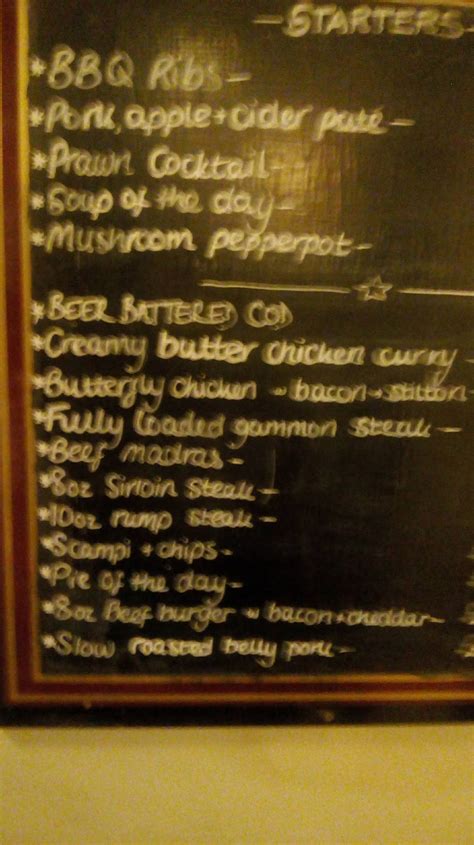 - STARTERS -
*BBQ Ribs -
*Pork, apple + cider paté -
*Prawn Cocktail -
*Soup of the day -
*Mushroom pepperpot -
*BEER BATTERED COD
*Creamy butter chicken curry -
*Butterfly chicken w bacon + stilton -
*Fully Loaded gammon steak -
*Beef madras -
*8oz Sirloin Steak -
*10oz rump steak -
*Scampi + chips -
*Pie of the day -
*8oz Beef burger w bacon + cheddar -
*Slow roasted belly pork -